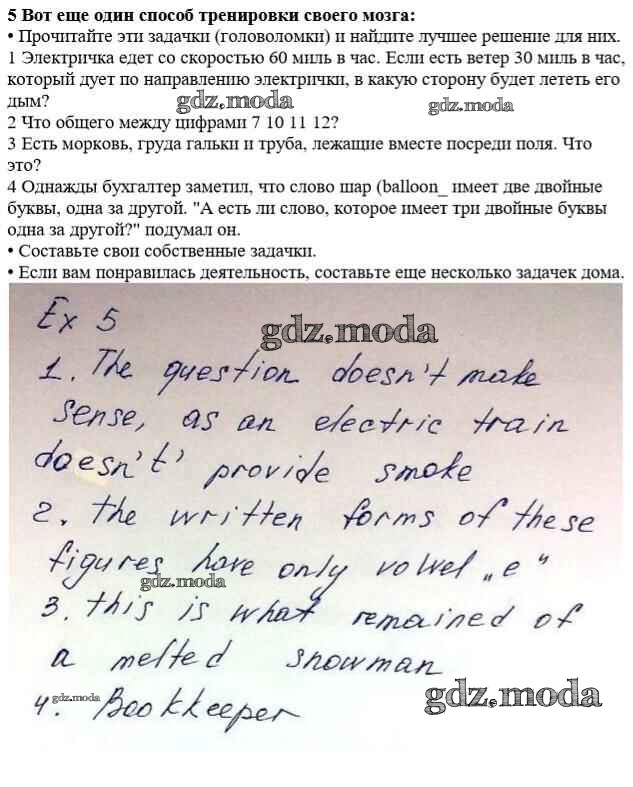 5 Вот еще один способ тренировки своего мозга:
• Прочитайте эти задачки (головоломки) и найдите лучшее решение для них.
1 Электричка едет со скоростью 60 миль в час. Если есть ветер 30 миль в час,
который дует по направлению электрички, в какую сторону будет лететь его
дым?
gdz.moda
gdz.moda
2 Что общего между цифрами 7 10 11 12?
3 Есть морковь, груда гальки и труба, лежащие вместе посреди поля. Что
это?
4 Однажды бухгалтер заметил, что слово шар (balloon_ имеет две двойные
буквы, одна за другой. "А есть ли слово, которое имеет три двойные буквы
одна за другой?" подумал он.
• Составьте свои собственные задачки.
• Если вам понравилась деятельность, составьте еще несколько задачек дома.
Ex 5
gdz.moda
1. The question doesn't make
sense, as an electric train
doesn't' provide smoke
2. the written forms of these
figures have only vowel „e"
gdz.moda
3. this is what remained of
a melted snowman
gdz.moda
4. Bookkeeper
gdz.moda